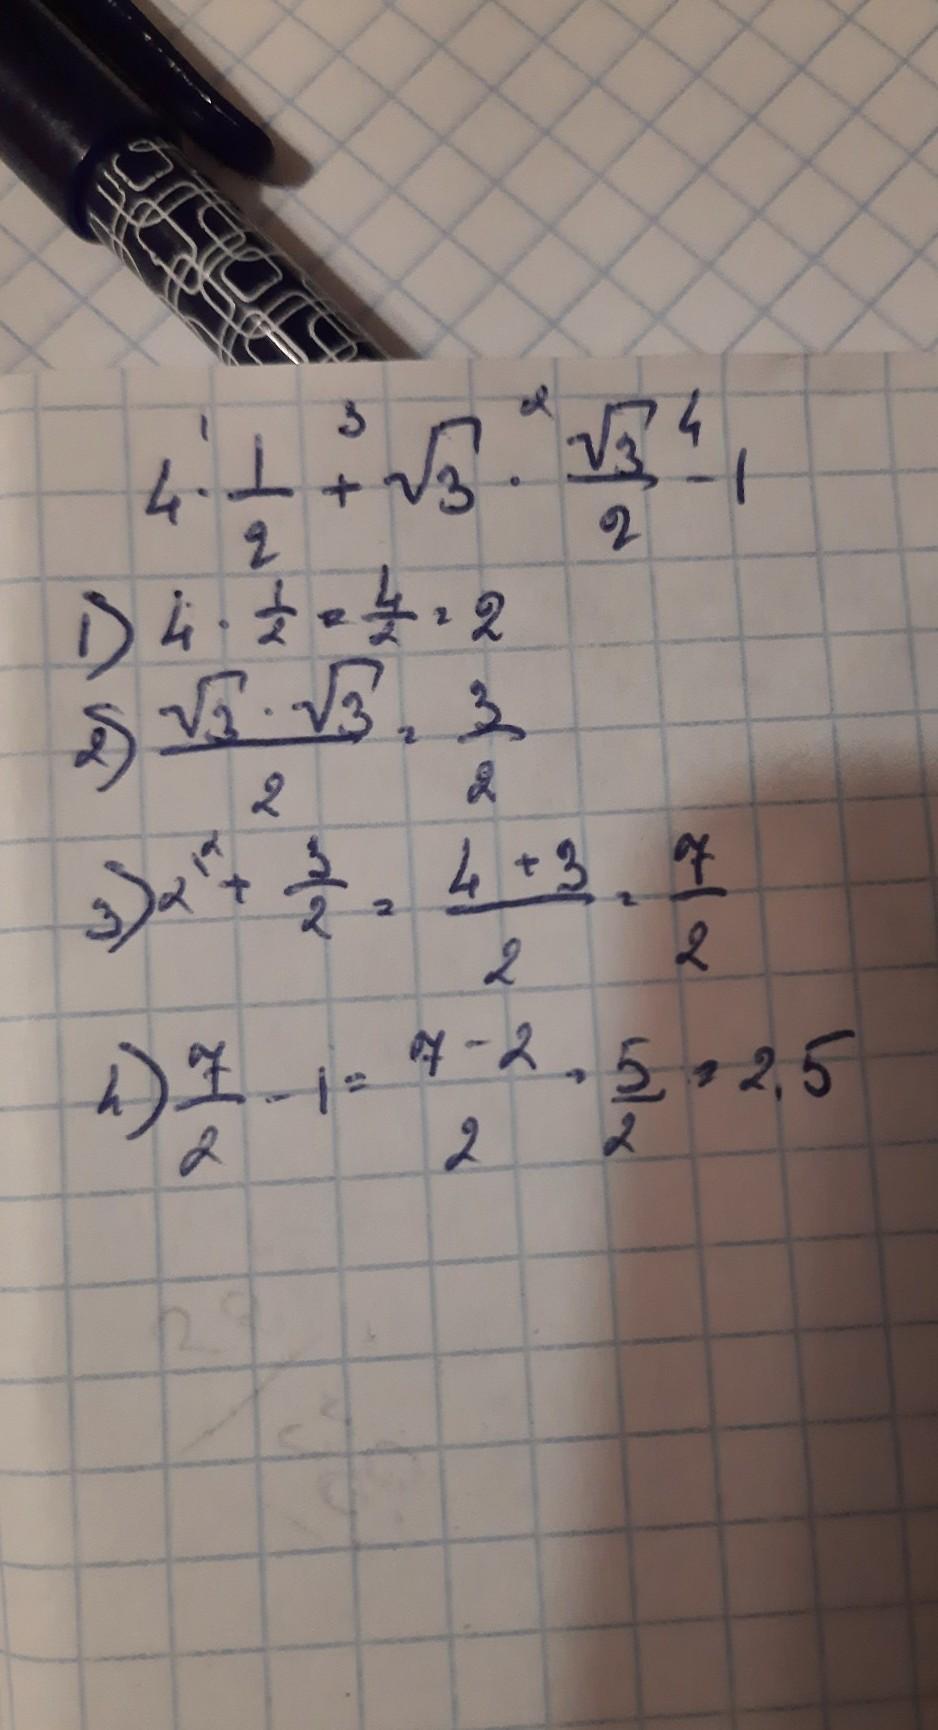 4 ·¹ 1/2 +³ √3 ·² √3/2 -⁴ 1
1) 4 · 1/2 = 4/2 = 2
2) √3 · √3/2 = 3/2
3) 2^2 + 3/2 = 4+3/2 = 7/2
4) 7/2 - 1 = 7-2/2 = 5/2 = 2.5